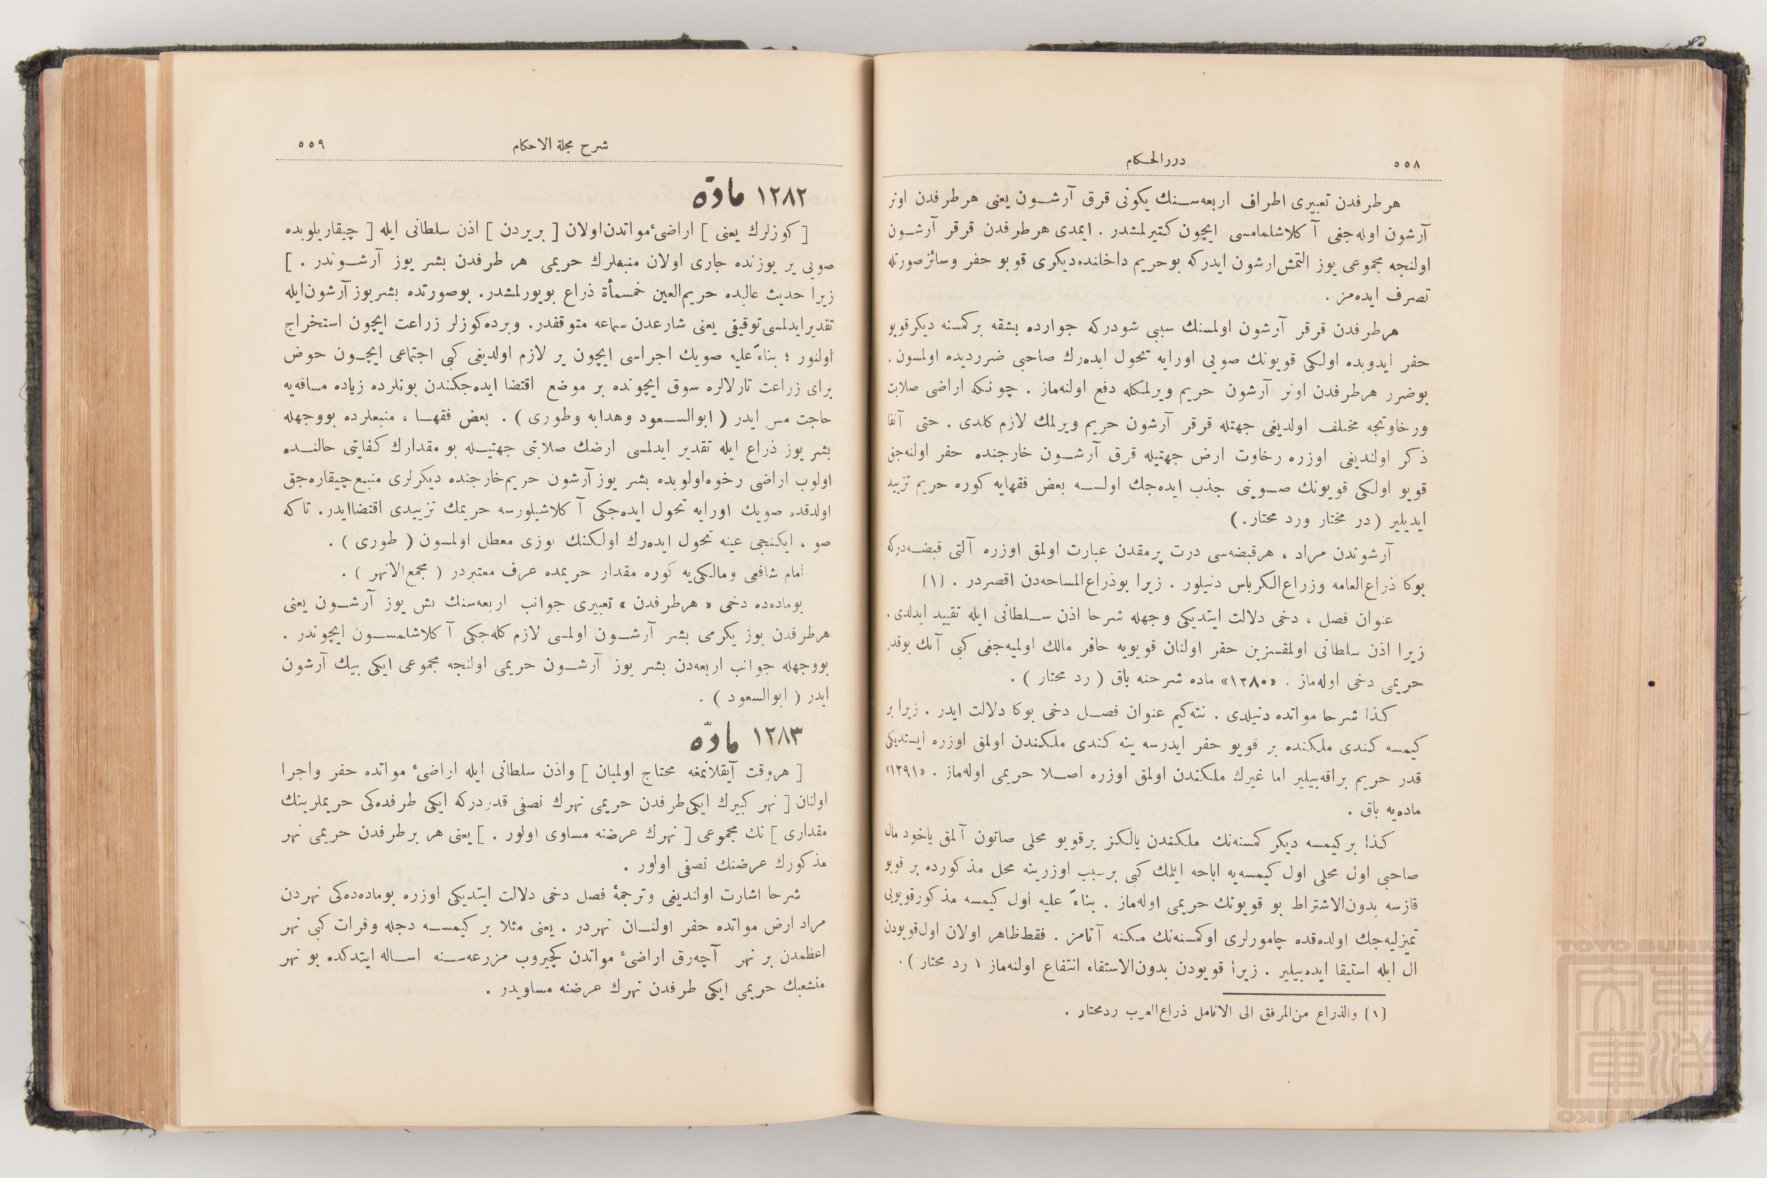 ٥٥٨
دررالحكام
هرطرفدن تعبيرى اطراف اربعه‌سنك يكونى قرق آرشون يعنى هرطرفدن اونر
آرشون اوله‌جغى آكلاشلمامسى ايچون كتيرلمشدر . ايمدى هرطرفدن قرقر آرشون
اولنجه مجموعى يوز التمش ارشون ايدركه بوحريم داخلنده ديكرى قويو حفر وسائر صورتله
تصرف ايده‌مز .
هرطرفدن قرقر آرشون اولمسنك سببى شودركه جوارده بشقه بركمسنه ديكرقويو
حفر ايدوبده اولكى قويونك صويى اورايه تحول ايده‌رك صاحبى ضررديده اولمسون .
بوضرر هرطرفدن اونر آرشون حريم ويرلمكله دفع اولنه‌ماز . چونكه اراضى صلابت
ورخاوتجه مختلف اولديغى جهتله قرقر آرشون حريم ويرلمك لازم كلدى . حتى آنفا
ذكر اولنديغى اوزره رخاوت ارض جهتيله قرق آرشون خارجنده حفر اولنه‌جق
قويو اولكى قويونك صوينى جذب ايده‌جك اولسه بعض فقهايه كوره حريم تزييد
ايديلير (در مختار ورد محتار.)
آرشوندن مراد ، هرقبضه‌سى درت پرمقدن عبارت اولمق اوزره آلتى قبضه‌دركه
بوكا ذراع‌العامه وزراع‌الكرباس دنيلور . زيرا بوذراع‌المساحه‌دن اقصردر . (١)
عنوان فصل ، دخى دلالت ايتديكى وجهله شرحا اذن سلطانى ايله تقييد ايدلدى .
زيرا اذن سلطانى اولمقسزين حفر اولنان قويويه حافر مالك اولميه‌جغى كبى آنك بوقدر
حريمى دخى اوله‌ماز . «١٢٨٠» ماده شرحنه باق ( رد محتار ) .
كذا شرحا مواتده دنيلدى . نته‌كيم عنوان فصل دخى بوكا دلالت ايدر . زيرا بر
كيمسه كندى ملكنده بر قويو حفر ايدرسه ينه كندى ملكندن اولمق اوزره ايستديكى
قدر حريم براقه‌بيلير اما غيرك ملكندن اولمق اوزره اصلا حريمى اوله‌ماز . «١٢٩١»
ماده‌يه باق .
كذا بركيمسه ديكر كمسنه‌نك ملكندن يالكز برقويو محلى صاتون آلمق ياخود مال
صاحبى اول محلى اول كيمسه‌يه اباحه ايتمك كبى برسبب اوزرينه محل مذكورده بر قويو
قازسه بدون‌الاشتراط بو قويونك حريمى اوله‌ماز . بناءً عليه اول كيمسه مذكورقويويى
تميزليه‌جك اولدقده چامورلرى اوكمسنه‌نك ملكنه آتامز . فقط ظاهر اولان اول‌قويودن
ال ايله استيقا ايده‌بيلير . زيرا قويودن بدون‌الاستقاء انتفاع اولنه‌ماز ( رد محتار ) .
(١) والذراع من‌المرفق الى الانامل ذراع‌العرب ردمحتار .
شرح مجلة الاحكام
٥٥٩
١٢٨٢ مادّه
[ كوزلرك يعنى ] اراضئ مواتدن‌اولان [ بريردن ] اذن سلطانى ايله [ چيقاريلوبده
صويى ير يوزنده جارى اولان منبعلرك حريمى هر طرفدن بشر يوز آرشوندر . ]
زيرا حديث عاليده حريم‌العين خمسمأة ذراع بويورلمشدر. بوصورتده بشريوز آرشون‌ايله
تقديرايدلمسى‌توقيفى يعنى شارعدن سماعه متوقفدر. وبرده‌كوزلر زراعت ايچون استخراج
اولنور ؛ بناءً عليه صويك اجراسى ايچون ير لازم اولديغى كبى اجتماعى ايچون حوض
براى زراعت تارلالره سوق ايچونده بر موضع اقتضا ايده‌جكندن بونلرده زياده مسافه‌يه
حاجت مس ايدر ( ابوالسعود وهدايه وطورى ) . بعض فقها ، منبعلرده بووجهله
بشر يوز ذراع ايله تقدير ايدلمسى ارضك صلابتى جهتيله بو مقدارك كفايتى حالنده
اولوب اراضى رخوه‌اولوبده بشر يوز آرشون حريم‌خارجنده ديكرلرى منبع‌چيقاره‌جق
اولدقده صويك اورايه تحول ايده‌جكى آكلاشيلورسه حريمك تزييدى اقتضاايدر. تاكه
صو ، ايكنجى عينه تحول ايده‌رك اولكنك يوزى معطل اولمسون ( طورى ) .
امام شافعى ومالكى‌يه كوره مقدار حريمده عرف معتبردر ( مجمع‌الانهر ) .
بوماده‌ده دخى « هرطرفدن » تعبيرى جوانب اربعه‌سنك بش يوز آرشون يعنى
هرطرفدن يوز يكرمى بشر آرشون اولمسى لازم كله‌جكى آكلاشلمسون ايچوندر .
بووجهله جوانب اربعه‌دن بشر يوز آرشون حريمى اولنجه مجموعى ايكى بيك آرشون
ايدر ( ابوالسعود ) .
١٢٨٣ مادّه
[ هروقت آيقلانمغه محتاج اولميان ] واذن سلطانى ايله اراضئ مواتده حفر واجرا
اولنان [ نهر كبيرك ايكى‌طرفدن حريمى نهرك نصفى قدردركه ايكى طرفده‌كى حريملرينك
مقدارى ] نك مجموعى [ نهرك عرضنه مساوى اولور . ] يعنى هر برطرفدن حريمى نهر
مذكورك عرضنك نصفى اولور .
شرحا اشارت اولنديغى وترجمهٔ فصل دخى دلالت ايتديكى اوزره بوماده‌ده‌كى نهردن
مراد ارض مواتده حفر اولنان نهردر . يعنى مثلا بر كيمسه دجله وفرات كبى نهر
اعظمدن بر نهر آچه‌رق اراضئ مواتدن كچيروب مزرعه‌سنه اساله ايتدكده بو نهر
منشعبك حريمى ايكى طرفدن نهرك عرضنه مساويدر .
TOYO BUNKO